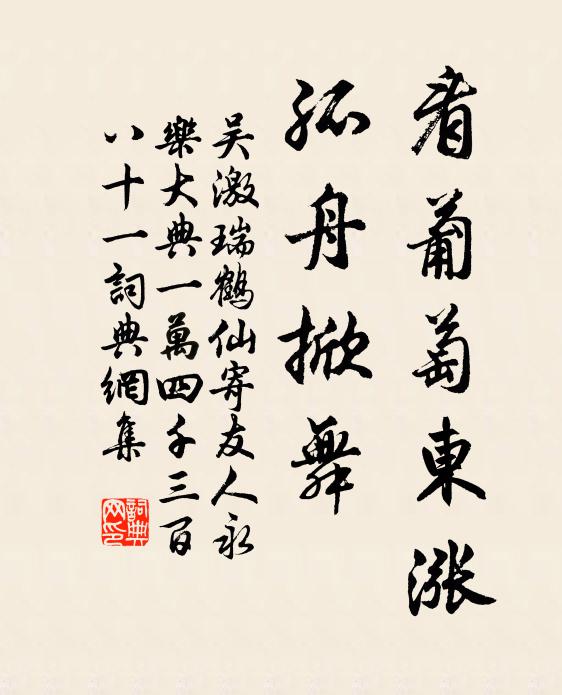 看葡萄東漲
孤舟掀舞
吴激瑞鶴仙寄友人永
樂大典一萬四千三百
八十一詞典網集
詞典
网印